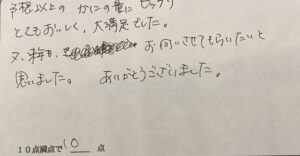 予想以上の かにの量に ビックリ
とてもおいしく、大満足でした。
又、来年 お伺いさせてもらいたいと
思いました。 ありがとうございました。
10点満点で 10 点